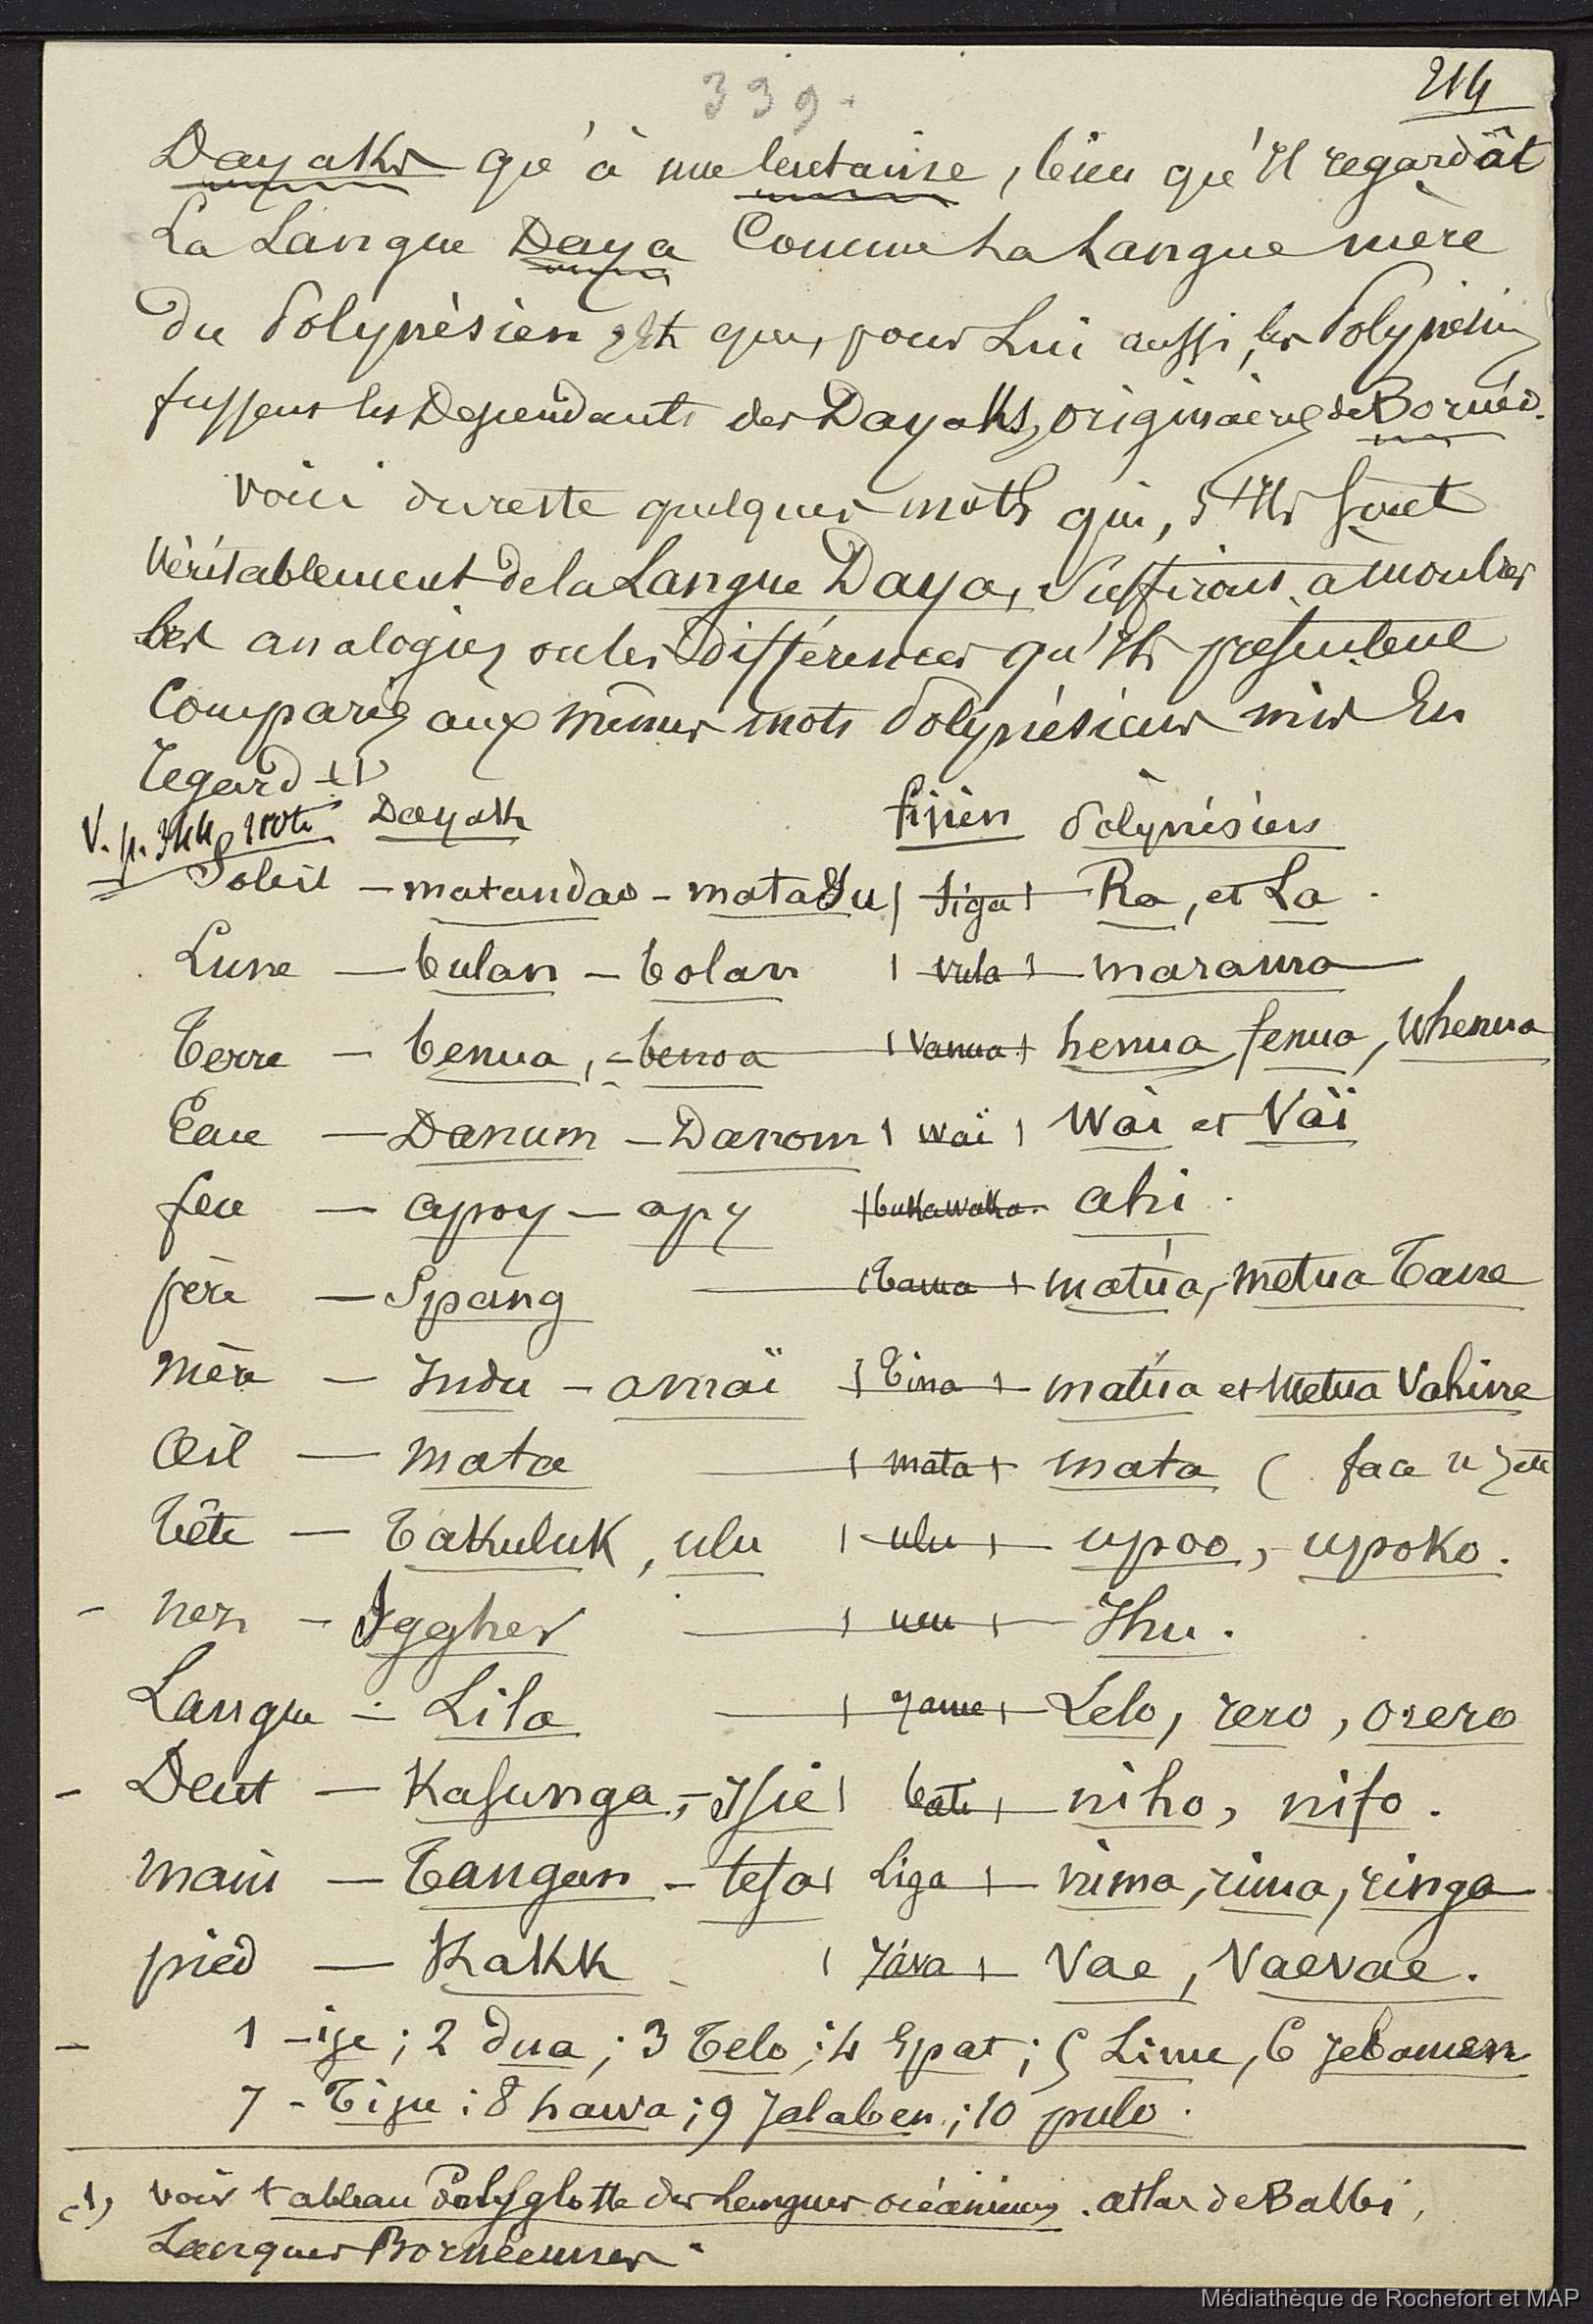 339.
214
Dayaks qu'à une centaine, bien qu'il regardât
La Langue Daya Comme La Langue mère
du Polynésien et que, pour Lui aussi, les Polynésiens
fussent les Descendants des Dayaks, originaires de Bornéo.
Voici du reste quelques mots qui, s'ils sont
Véritablement de la Langue Daya, Suffiront à montrer
les analogies ou les différences qu'ils présentent
Comparés aux mêmes mots Polynésiens mis En
regard (1)
V. p. 344, note Dayak fijien Polynésien
Soleil — matandao - matasu | siga | Ra, et La.
Lune — bulan - bolan | vula | marama
Terre — benua, - benoa | vanua | henua, fenua, Whenua
Eau — Danum - Danom | waï | Wai et Vaï
feu — apoy - apy | bukawaka. ahi.
père — Spang | tama | matúa, metua Tane
Mère — Indu - amaï | Tina | matúa et Metua Vahine
Œil — mata | mata | mata ( face
Tête — Takuluk, ulu | ulu | upoo, upoko.
- nez - Iggher | ucu | Ihu.
Langue - Lila | yame | Lelo, rero, orero
- Dent — Kasunga, - Isie | bati | niho, nifo.
main — Tangan - tesa | Liga | nima, rima, ringa
pied — Kakk | Yáva | Vae, Vaevae.
- 1 - ije; 2 dua; 3 Telo; 4 Epat; 5 Lime, 6 Jebawen
7 - Tiju; 8 hawa; 9 Jalaben; 10 pulo.
(1) voir tableau Polyglotte des Langues océaniennes. atlas de Balbi,
Langues Bornéennes.
Médiathèque de Rochefort et MAP